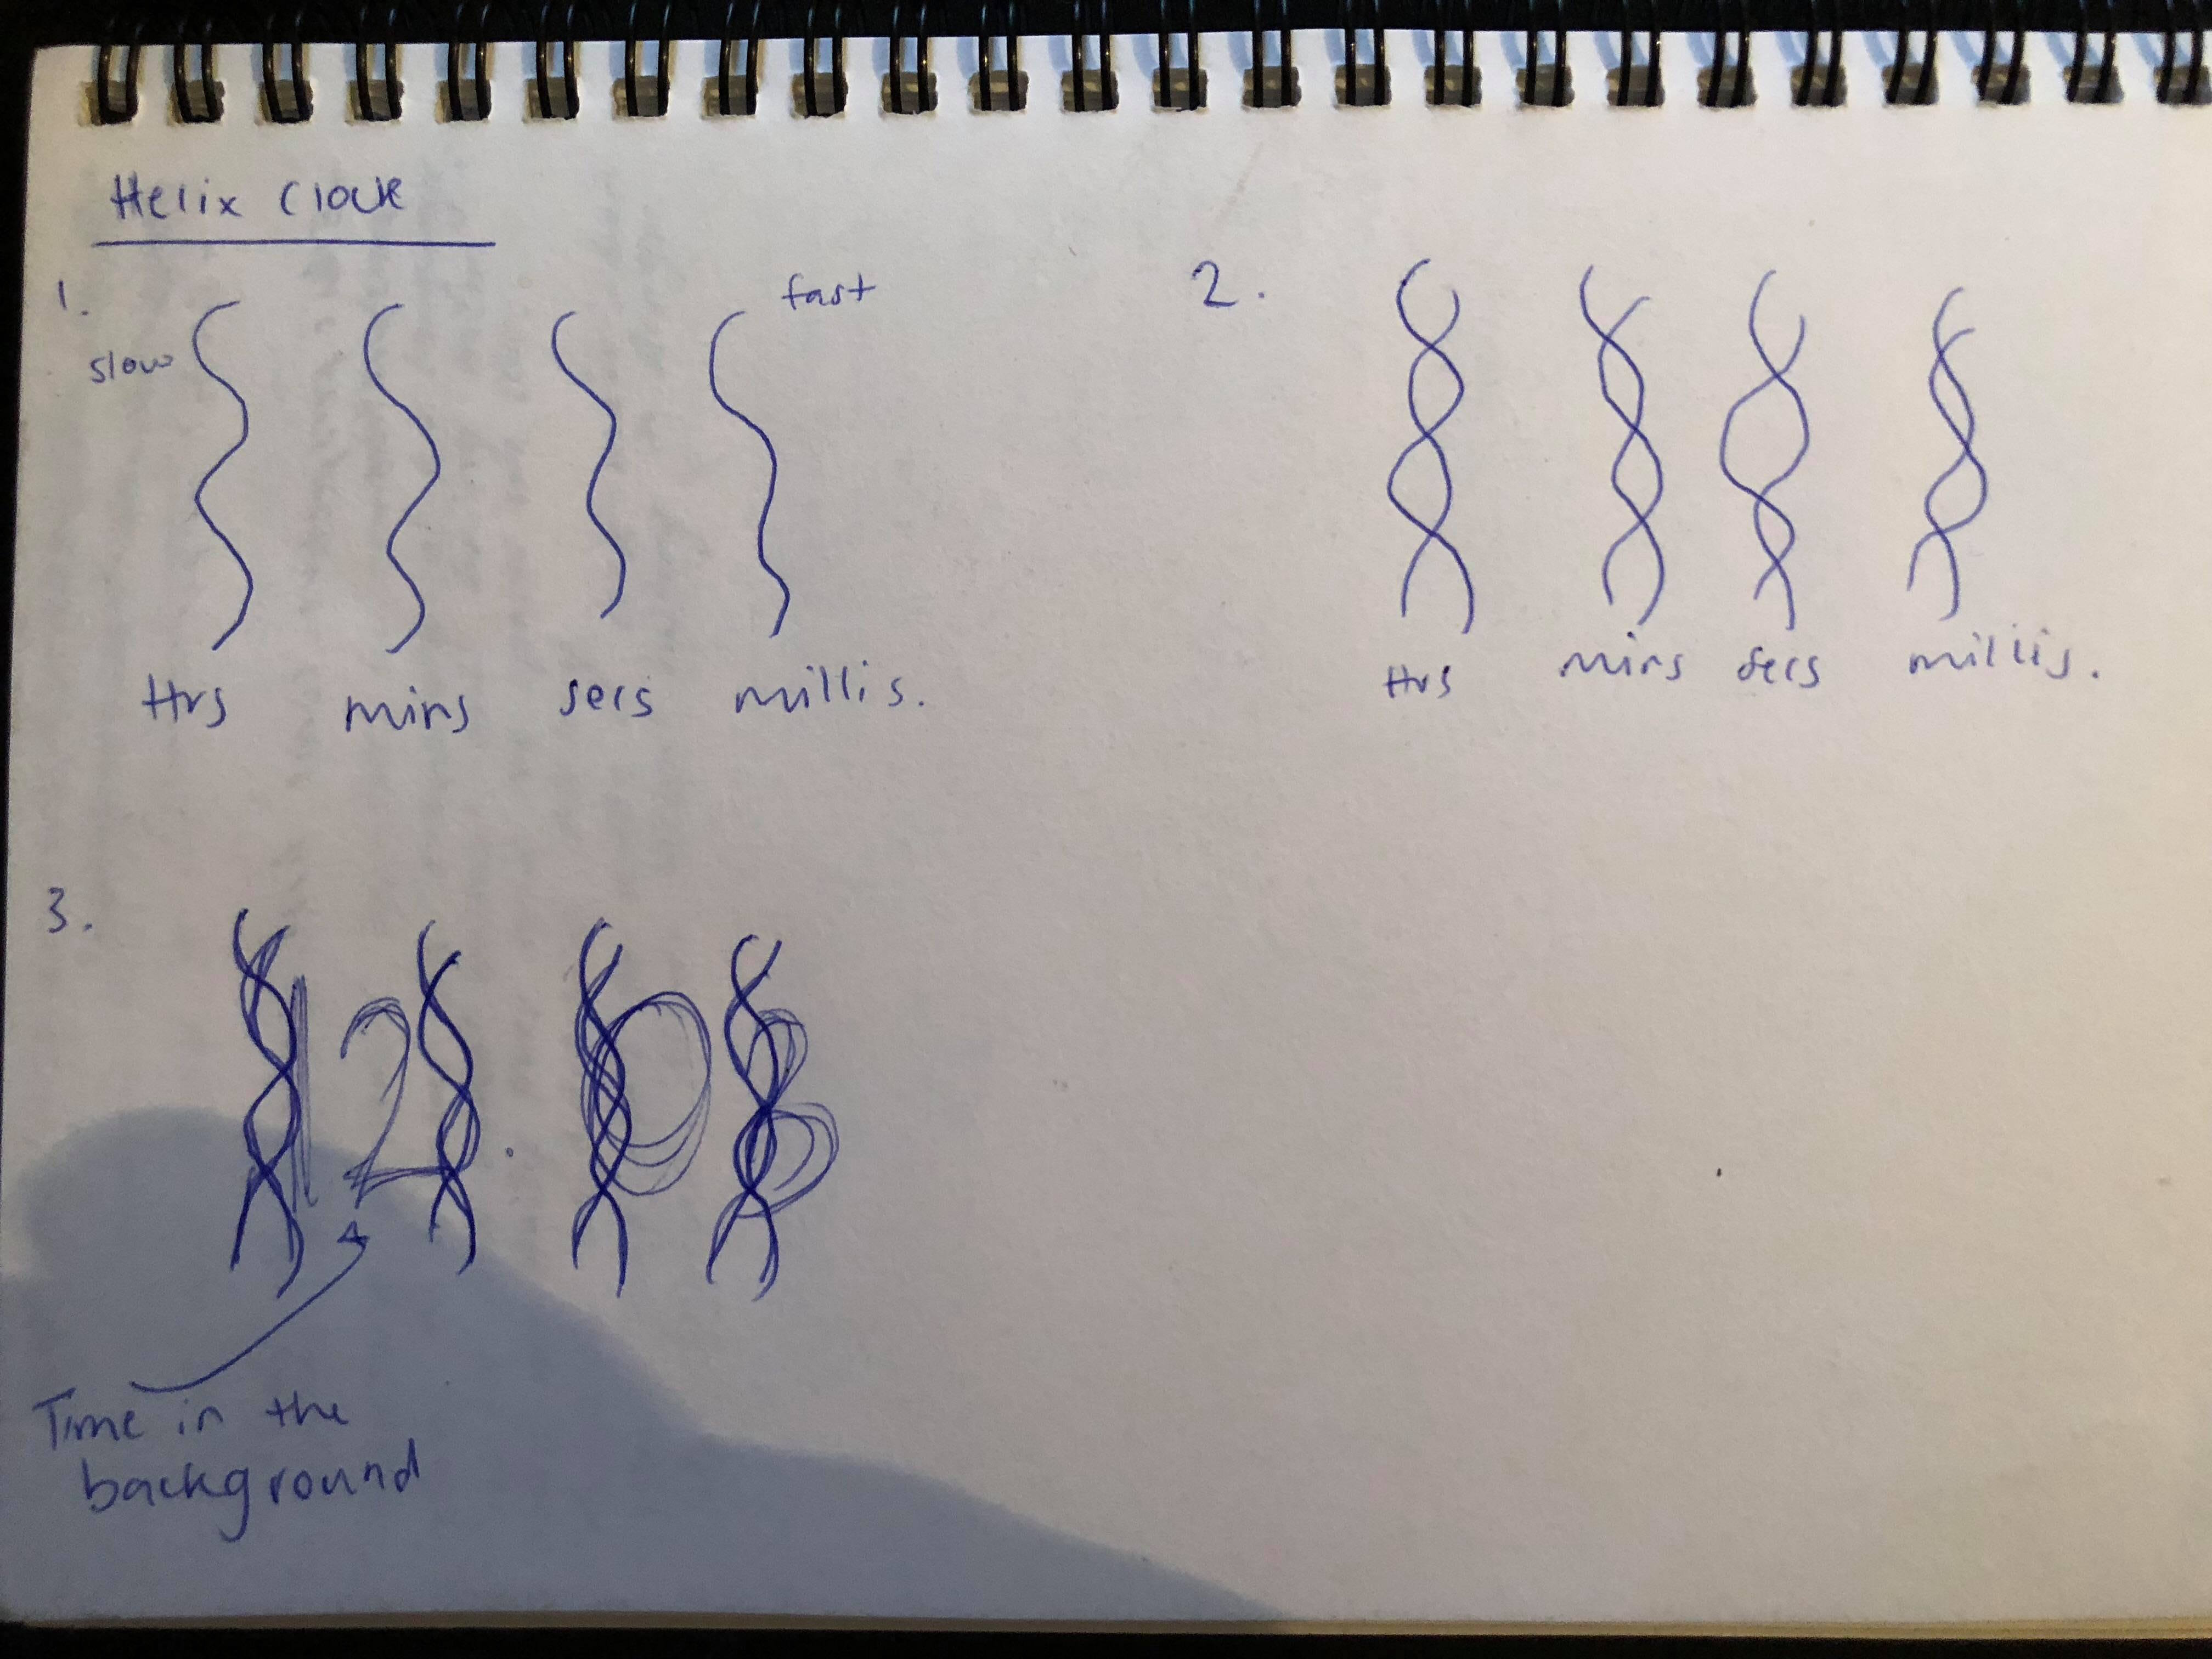 Helix Clock
1.
slow
fast
Hrs mins secs millis.
2.
Hrs mins secs millis.
3.
12.03
Time in the
background